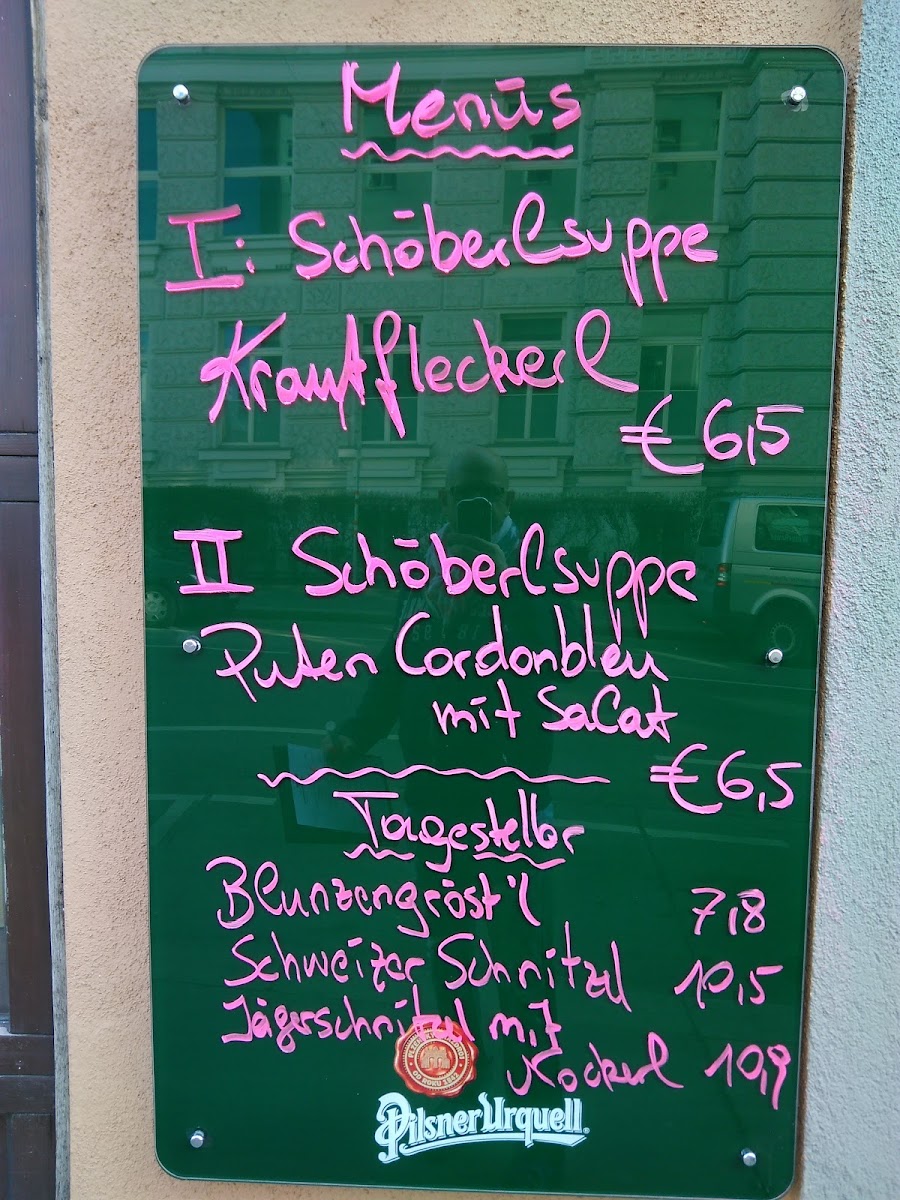 Menüs
I: Schöberlsuppe
Krautfleckerl
€ 6,5
II Schöberlsuppe
Puten Cordonbleu
mit Salat
€ 6,5
Tagesteller
Blunzengröst'l 7,8
Schweizer Schnitzel 10,5
Jägerschnitzel mit
Nockerl 10,9
OD ROKU 1842
Pilsner Urquell